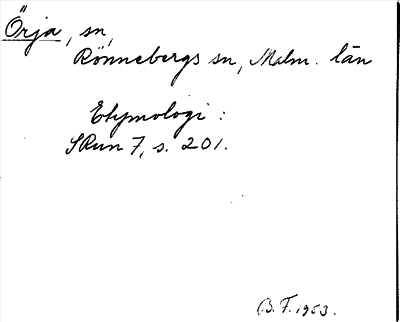 Örja, sn,
Rönnebergs sn, Malm. län
Etymologi:
SRun 7, s. 201.
B.F. 1953.